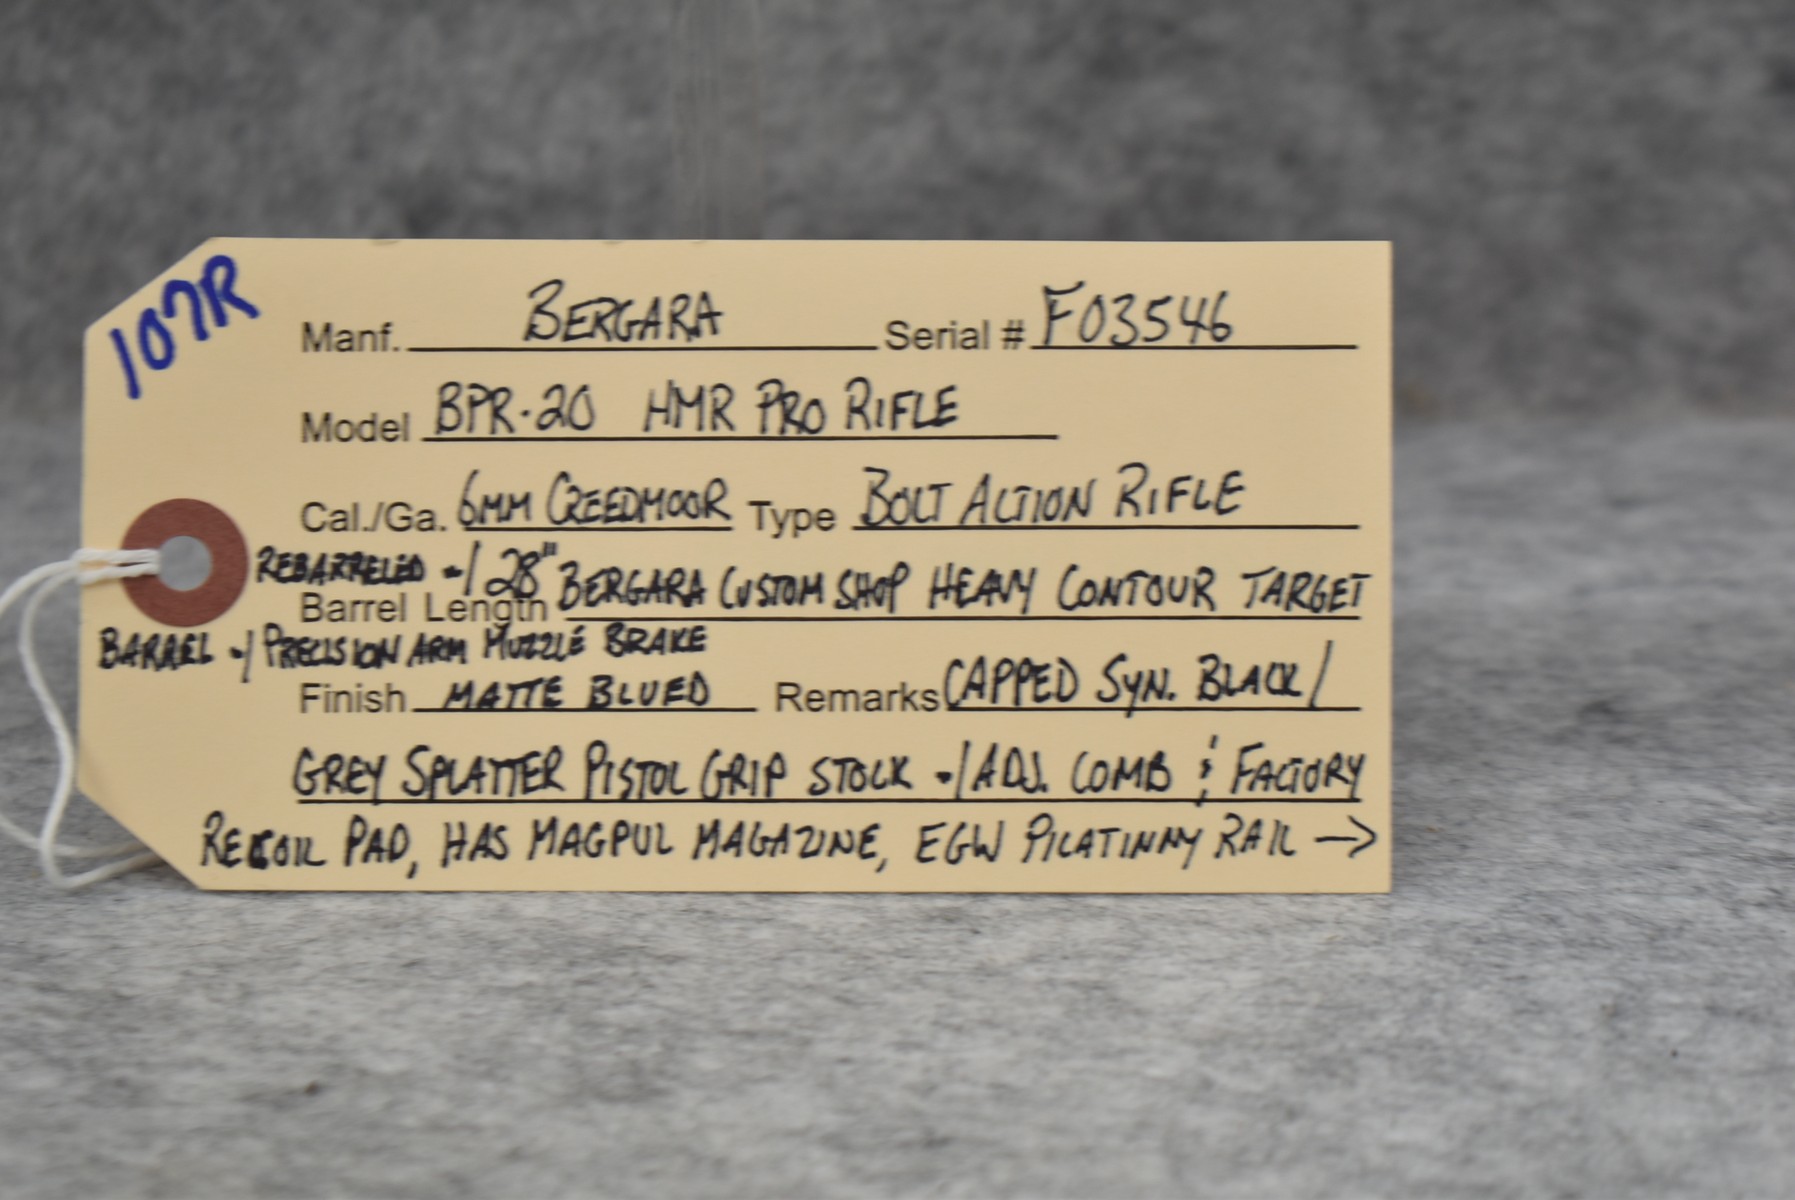 107R
Manf. BERGARA Serial # F03546
Model BPR-20 HMR PRO RIFLE
Cal./Ga. 6MM CREEDMOOR Type BOLT ACTION RIFLE
REBARRELED w/ 28" BERGARA CUSTOM SHOP HEAVY CONTOUR TARGET
Barrel Length
BARREL w/ PRECISION ARM MUZZLE BRAKE
Finish MATTE BLUED Remarks CAPPED SYN. BLACK/
GREY SPLATTER PISTOL GRIP STOCK w/ ADJ. COMB & FACTORY
RECOIL PAD, HAS MAGPUL MAGAZINE, EGW PICATINNY RAIL →